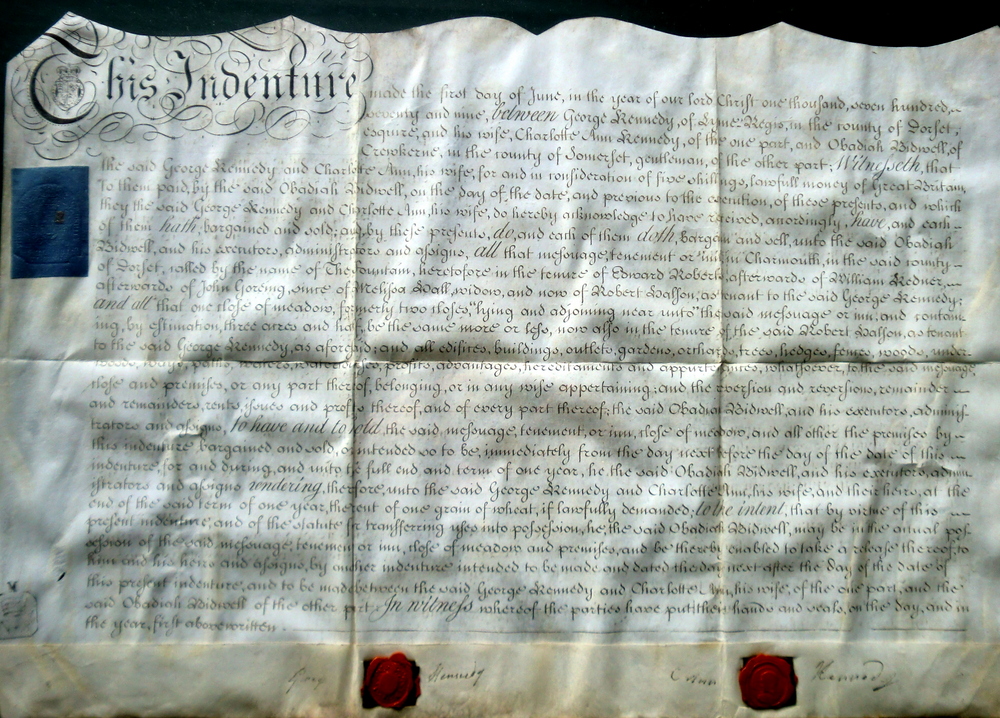 This Indenture made the first day of June, in the year of our lord Christ one thousand, seven hundred,
seventy and nine, between George Kennedy, of Lyme-Regis, in the county of Dorset,
esquire, and his wife, Charlotte Ann Kennedy, of the one part, and Obadiah Bidwell, of
Crewkerne, in the county of Somerset, gentleman, of the other part; Witnesseth, that
the said George Kennedy and Charlotte Ann, his wife, for and in consideration of five shillings, lawfull money of Great Britain,
To them paid, by the said Obadiah Bidwell, on the day of the date, and previous to the execution, of these presents, and which
they the said George Kennedy and Charlotte Ann, his wife, do hereby acknowledge to have received, accordingly, have, and each
of them hath, bargained and sold; and, by these presents, do, and each of them doth, bargain and sell, unto the said Obadiah
Bidwell, and his executors, administrators and assigns, all that messuage, tenement or inn in Charmouth, in the said county
of Dorset, called by the name of The Fountain, heretofore in the tenure of Edward Roberts, afterwards of William Redner,
afterwards of John Goreing, since of Melissa Hall, widow, and now of Robert Hasson, as tenant to the said George Kennedy;
and all that one close of meadow, formerly two closes, lying and adjoining near unto the said messuage or inn; and contain-
ing, by estimation, three acres and half, be the same more or less, now also in the tenure of the said Robert Hasson, as tenant
to the said George Kennedy, as aforesaid; and all edifices, buildings, outlets, gardens, orchards, trees, hedges, fences, woods, under-
woods, ways, paths, waters, watercourses, profits, advantages, hereditaments and appurtenances, whatsoever, to the said messuage,
close and premises, or any part thereof, belonging, or in any wise appertaining; and the reversion and reversions, remainder
and remainders, rents, issues and profits thereof, and of every part thereof; the said Obadiah Bidwell, and his executors, adminis-
trators and assigns, to have and to hold, the said messuage, tenement, or inn, close of meadow, and all other the premises by
this indenture bargained and sold, or intended so to be, immediately from the day next before the day of the date of this
indenture, for and during, and unto the full end and term of one year, he the said Obadiah Bidwell, and his executors, admin-
istrators and assigns rendering, therefore, unto the said George Kennedy and Charlotte Ann, his wife, and their heirs, at the
end of the said term of one year, the rent of one grain of wheat, if lawfully demanded; to the intent, that by virtue of this
present indenture, and of the statute for transferring uses into possession, he, the said Obadiah Bidwell, may be in the actual pos-
session of the said messuage, tenement or inn, close of meadow and premises, and be thereby enabled to take a release thereof, to
him and his heirs and assigns, by another indenture intended to be made and dated the day next after the day of the date of
this present indenture, and to be made between the said George Kennedy and Charlotte Ann, his wife, of the one part, and the
said Obadiah Bidwell of the other part; In witness whereof the parties have put their hands and seals, on the day, and in
the year, first abovewritten.
Kennedy Kennedy